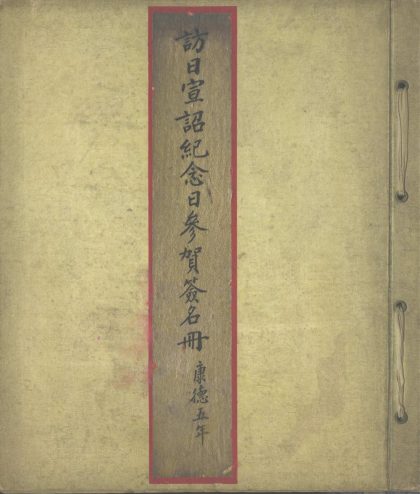 訪日宣詔紀念日參賀簽名冊
康德五年